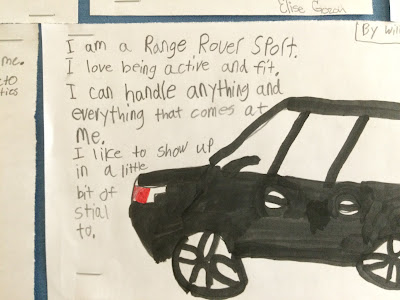 Elise Gozan
By Will
me.
cto
ties
I am a Range Rover Sport.
I love being active and fit.
I can handle anything and
everything that comes at
me.
I like to show up
in a little
bit of
stial
to.